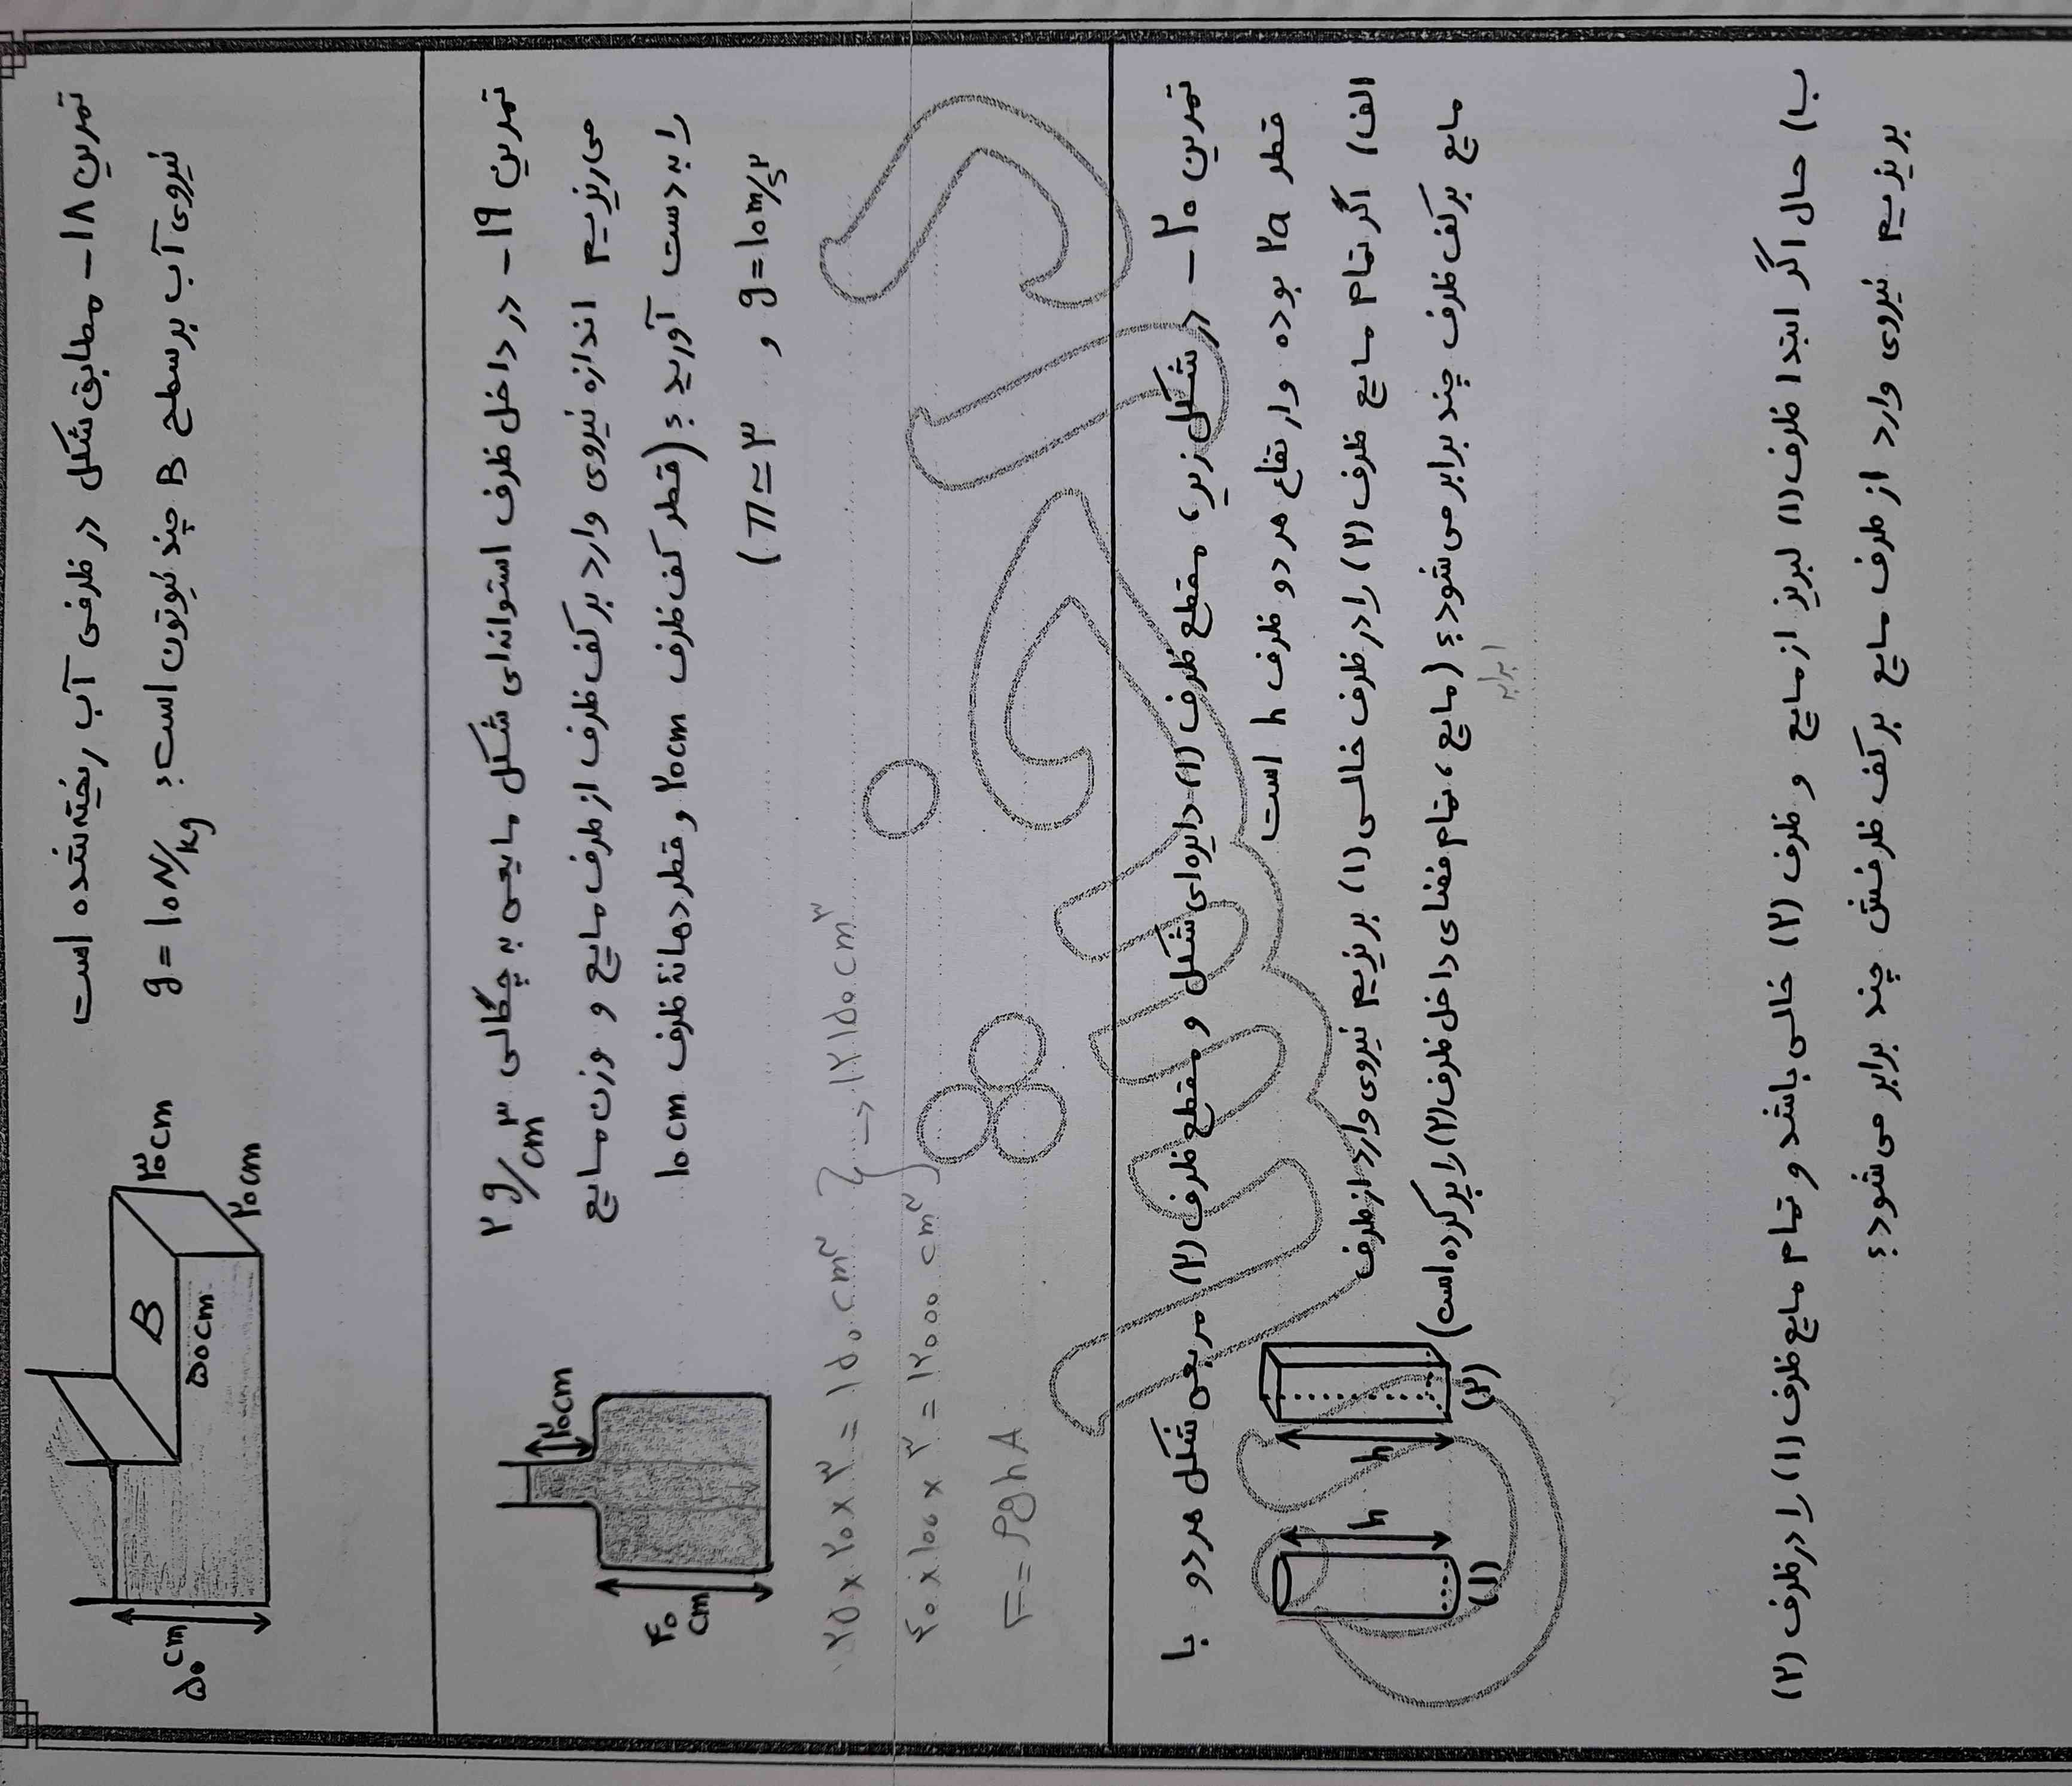 تمرین ۱۸- مطابق شکل در ظرفی آب ریخته شده است
نیروی آب بر سطح B چند نیوتون است؟ g = ۱۰ N/kg
B
۵۰cm
۳۰cm
۲۰cm
۵۰ cm
تمرین ۱۹- در داخل ظرف استوانه‌ای شکل مایعی به چگالی ۲ g/cm³
می‌ریزیم اندازه نیروی وارد بر کف ظرف از طرف مایع و وزن مایع
را به دست آورید؟ (قطر کف ظرف ۲۰cm و قطر دهانهٔ ظرف ۱۰cm
π ≃ ۳ و g = ۱۰ m/s²)
۲۰cm
۴۰ cm
۲۵ × ۲۰ × ۳ = ۱۵۰ cm³
→ ۱۲۱۵۰ cm³
۴۰ × ۱۰۰ × ۳ = ۱۲۰۰۰ cm³
F = ρghA
تمرین ۲۰- در شکل زیر، مقطع ظرف (۱) دایره‌ای شکل و مقطع ظرف (۲) مربعی شکل هر دو با
قطر ۲a بوده و ارتفاع هر دو ظرف h است
الف) اگر تمام مایع ظرف (۲) را در ظرف خالی (۱) بریزیم نیروی وارد از طرف
مایع بر کف ظرف چند برابر می‌شود؟ (مایع، تمام فضای داخل ظرف (۲) را پر کرده است)
۱ برابر
h
(۱)
h
(۲)
ب) حال اگر ابتدا ظرف (۱) لبریز از مایع و ظرف (۲) خالی باشد و تمام مایع ظرف (۱) را در ظرف (۲)
بریزیم نیروی وارد از طرف مایع بر کف ظرفش چند برابر می‌شود؟